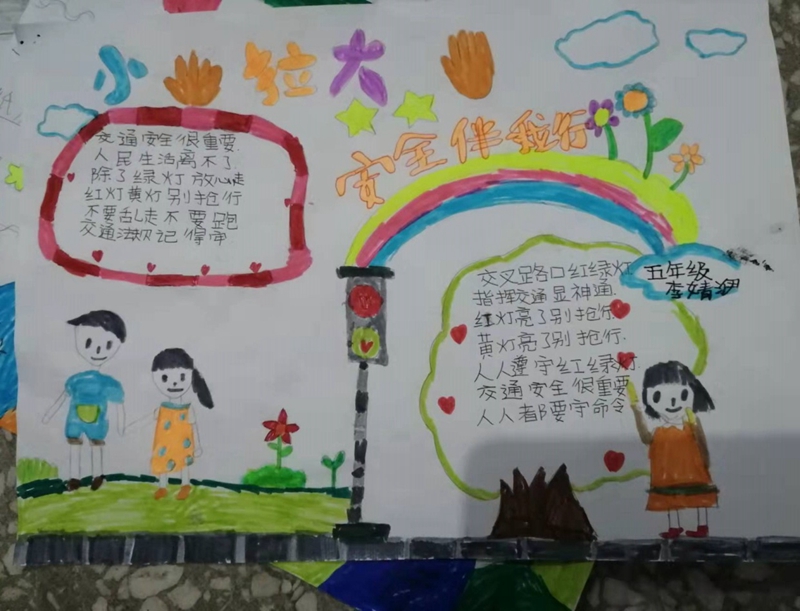 小手拉大手
安全伴我行
交通安全很重要
人民生活离不了
除了绿灯放心走
红灯黄灯别抢行
不要乱走不要跑
交通法规记得牢
五年级
李婧
交叉路口红绿灯
指挥交通显神通
红灯亮了别抢行
黄灯亮了别抢行.
人人遵守红绿灯.
交通安全很重要
人人都要守命令